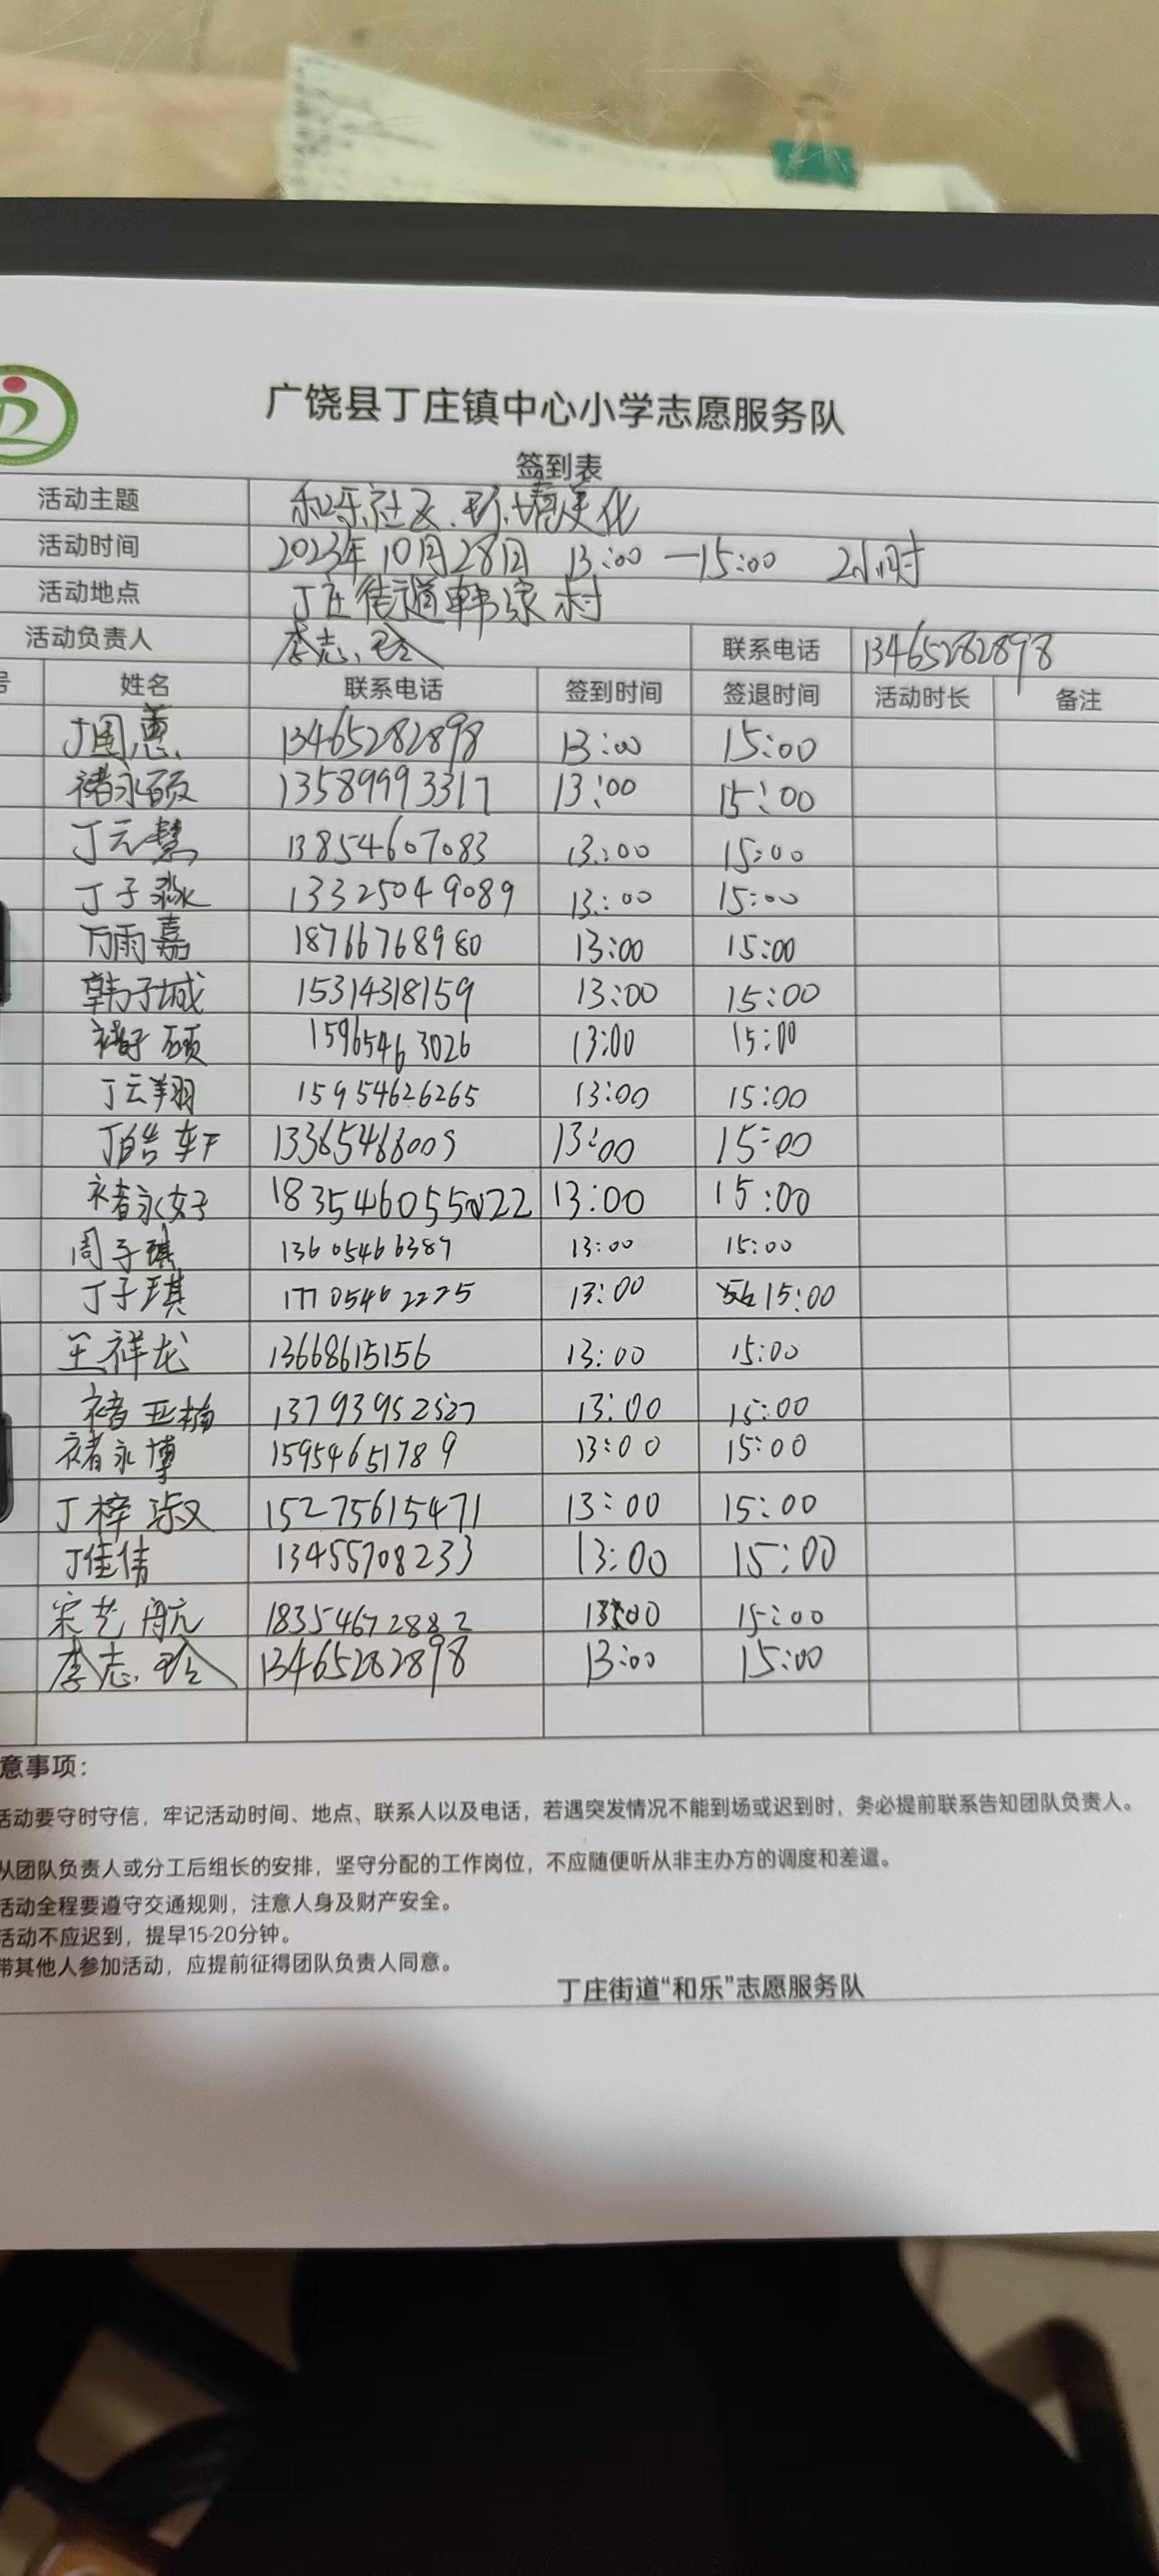 广饶县丁庄镇中心小学志愿服务队
签到表
活动主题 和乐社区.环境美化
活动时间 2023年10月28日 13:00—15:00 2小时
活动地点 丁庄街道韩家村
活动负责人 李志玲 联系电话 13465282898
号 姓名 联系电话 签到时间 签退时间 活动时长 备注
丁周蕙 13465282898 13:00 15:00
褚永硕 13589993317 13:00 15:00
丁云慧 13854607083 13:00 15:00
丁子淼 13325049089 13:00 15:00
万雨嘉 18766768980 13:00 15:00
韩子城 15314318159 13:00 15:00
褚子硕 15965463026 13:00 15:00
丁云翔 15954626265 13:00 15:00
丁皓轩 13365468009 13:00 15:00
褚永好 13:00 15:00
周子琪 13605466387 13:00 15:00
丁子琪 17705462275 13:00 15:00
王祥龙 13668615156 13:00 15:00
褚亚楠 13:00 15:00
褚永博 15954651789 13:00 15:00
丁梓淑 15275615471 13:00 15:00
丁佳倩 13455708233 13:00 15:00
宋艺航 18354672882 13:00 15:00
李志玲 13465282898 13:00 15:00
意事项：
活动要守时守信，牢记活动时间、地点、联系人以及电话，若遇突发情况不能到场或迟到时，务必提前联系告知团队负责人。
从团队负责人或分工后组长的安排，坚守分配的工作岗位，不应随便听从非主办方的调度和差遣。
活动全程要遵守交通规则，注意人身及财产安全。
活动不应迟到，提早15-20分钟。
带其他人参加活动，应提前征得团队负责人同意。
丁庄街道“和乐”志愿服务队